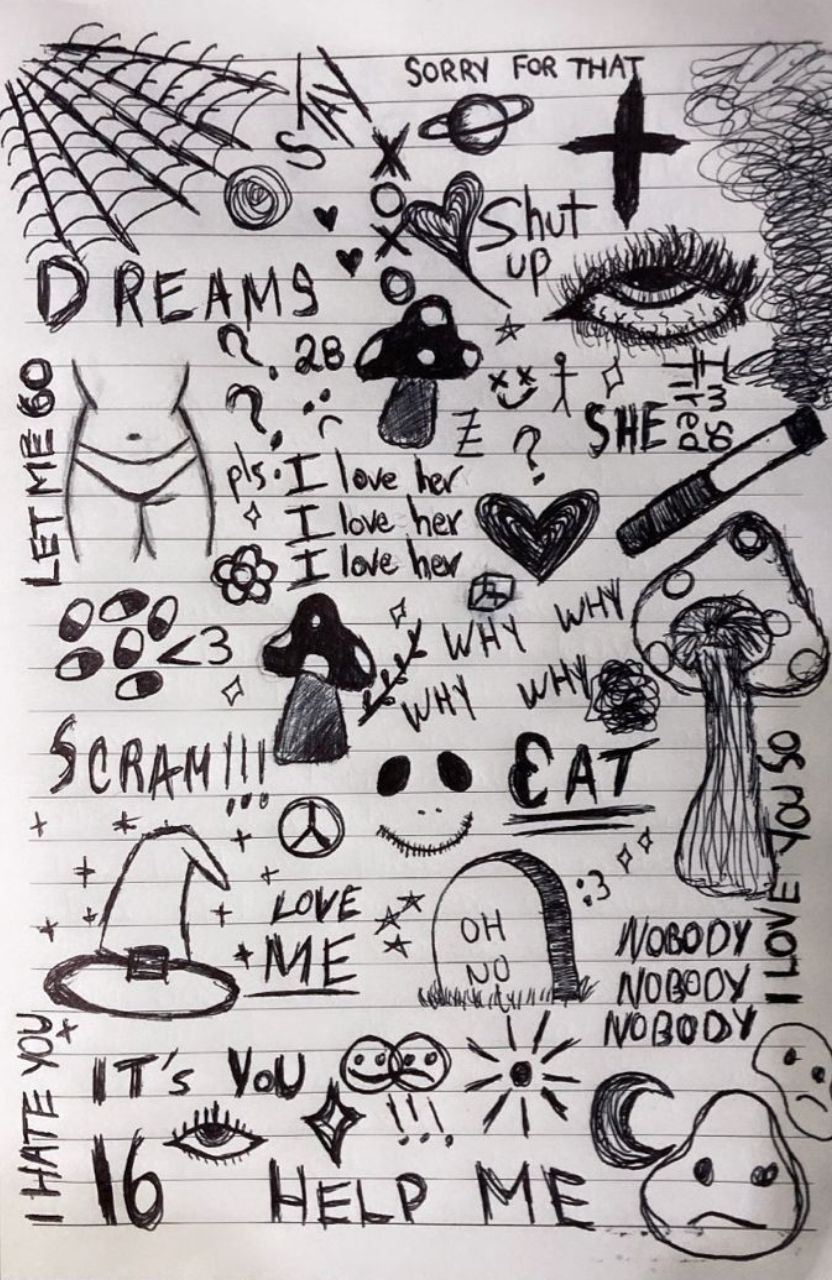 SORRY FOR THAT
STAY
X
O
X
O
Shut
up
DREAMS
? 28
?
I'm so
tired
SHE
LET ME GO
Z
?
pls. I love her
I love her
I love her
<3
WHY WHY
WHY WHY
SCRAM!!!
EAT
I LOVE YOU SO
:3
LOVE
ME
OH
NO
NOBODY
NOBODY
NOBODY
I HATE YOU
IT's YOU
!!!
16
HELP ME